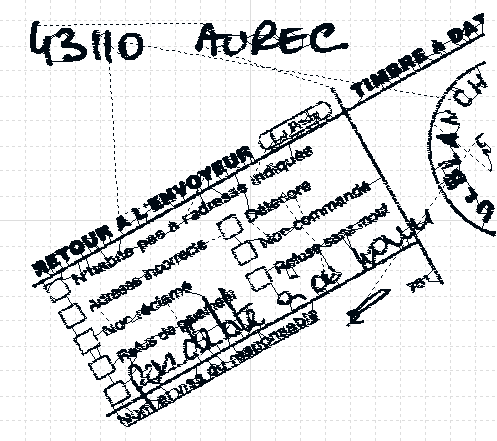 43110 AUREC
TIMBRE à DAT
La Poste
RETOUR A L'ENVOYEUR
N'habite pas à l'adresse indiquée
Adresse incorrecte
Non réclamé
Refus de paiement
Détérioré
Non commandé
Refusé sans motif
pas de bte à ce
Nom et visa du responsable
BLANCH